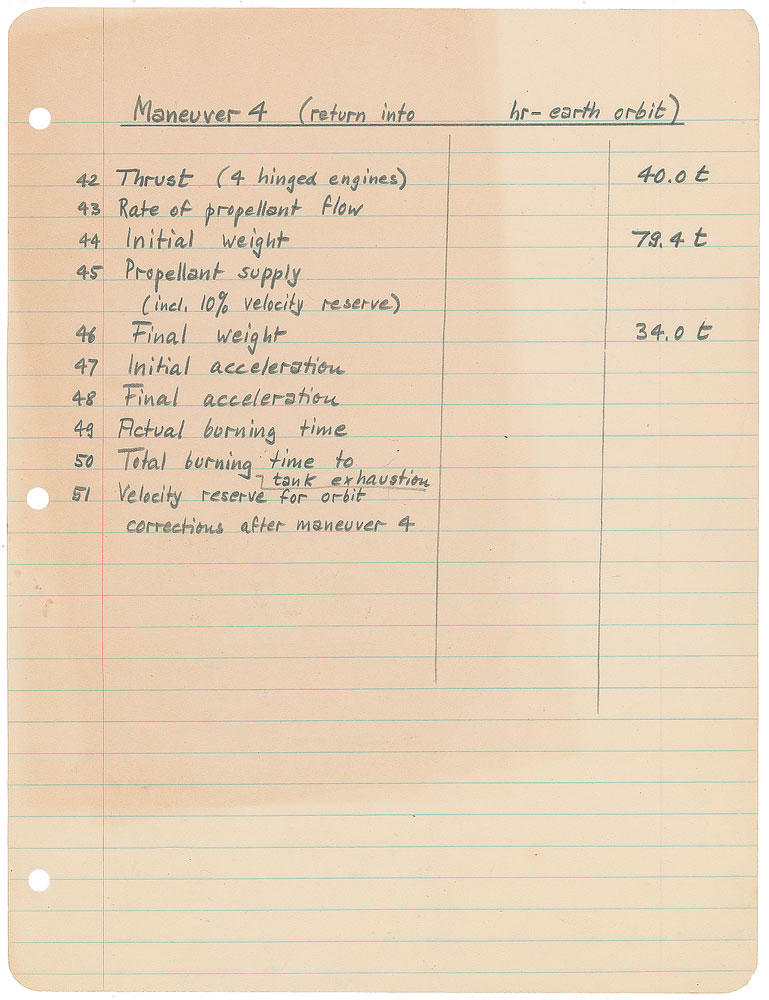 Maneuver 4 (return into hr- earth orbit)
42 Thrust (4 hinged engines) 40.0 t
43 Rate of propellant flow
44 Initial weight 79.4 t
45 Propellant supply
(incl. 10% velocity reserve)
46 Final weight 34.0 t
47 Initial acceleration
48 Final acceleration
49 Actual burning time
50 Total burning time to
tank exhaustion
51 Velocity reserve for orbit
corrections after maneuver 4